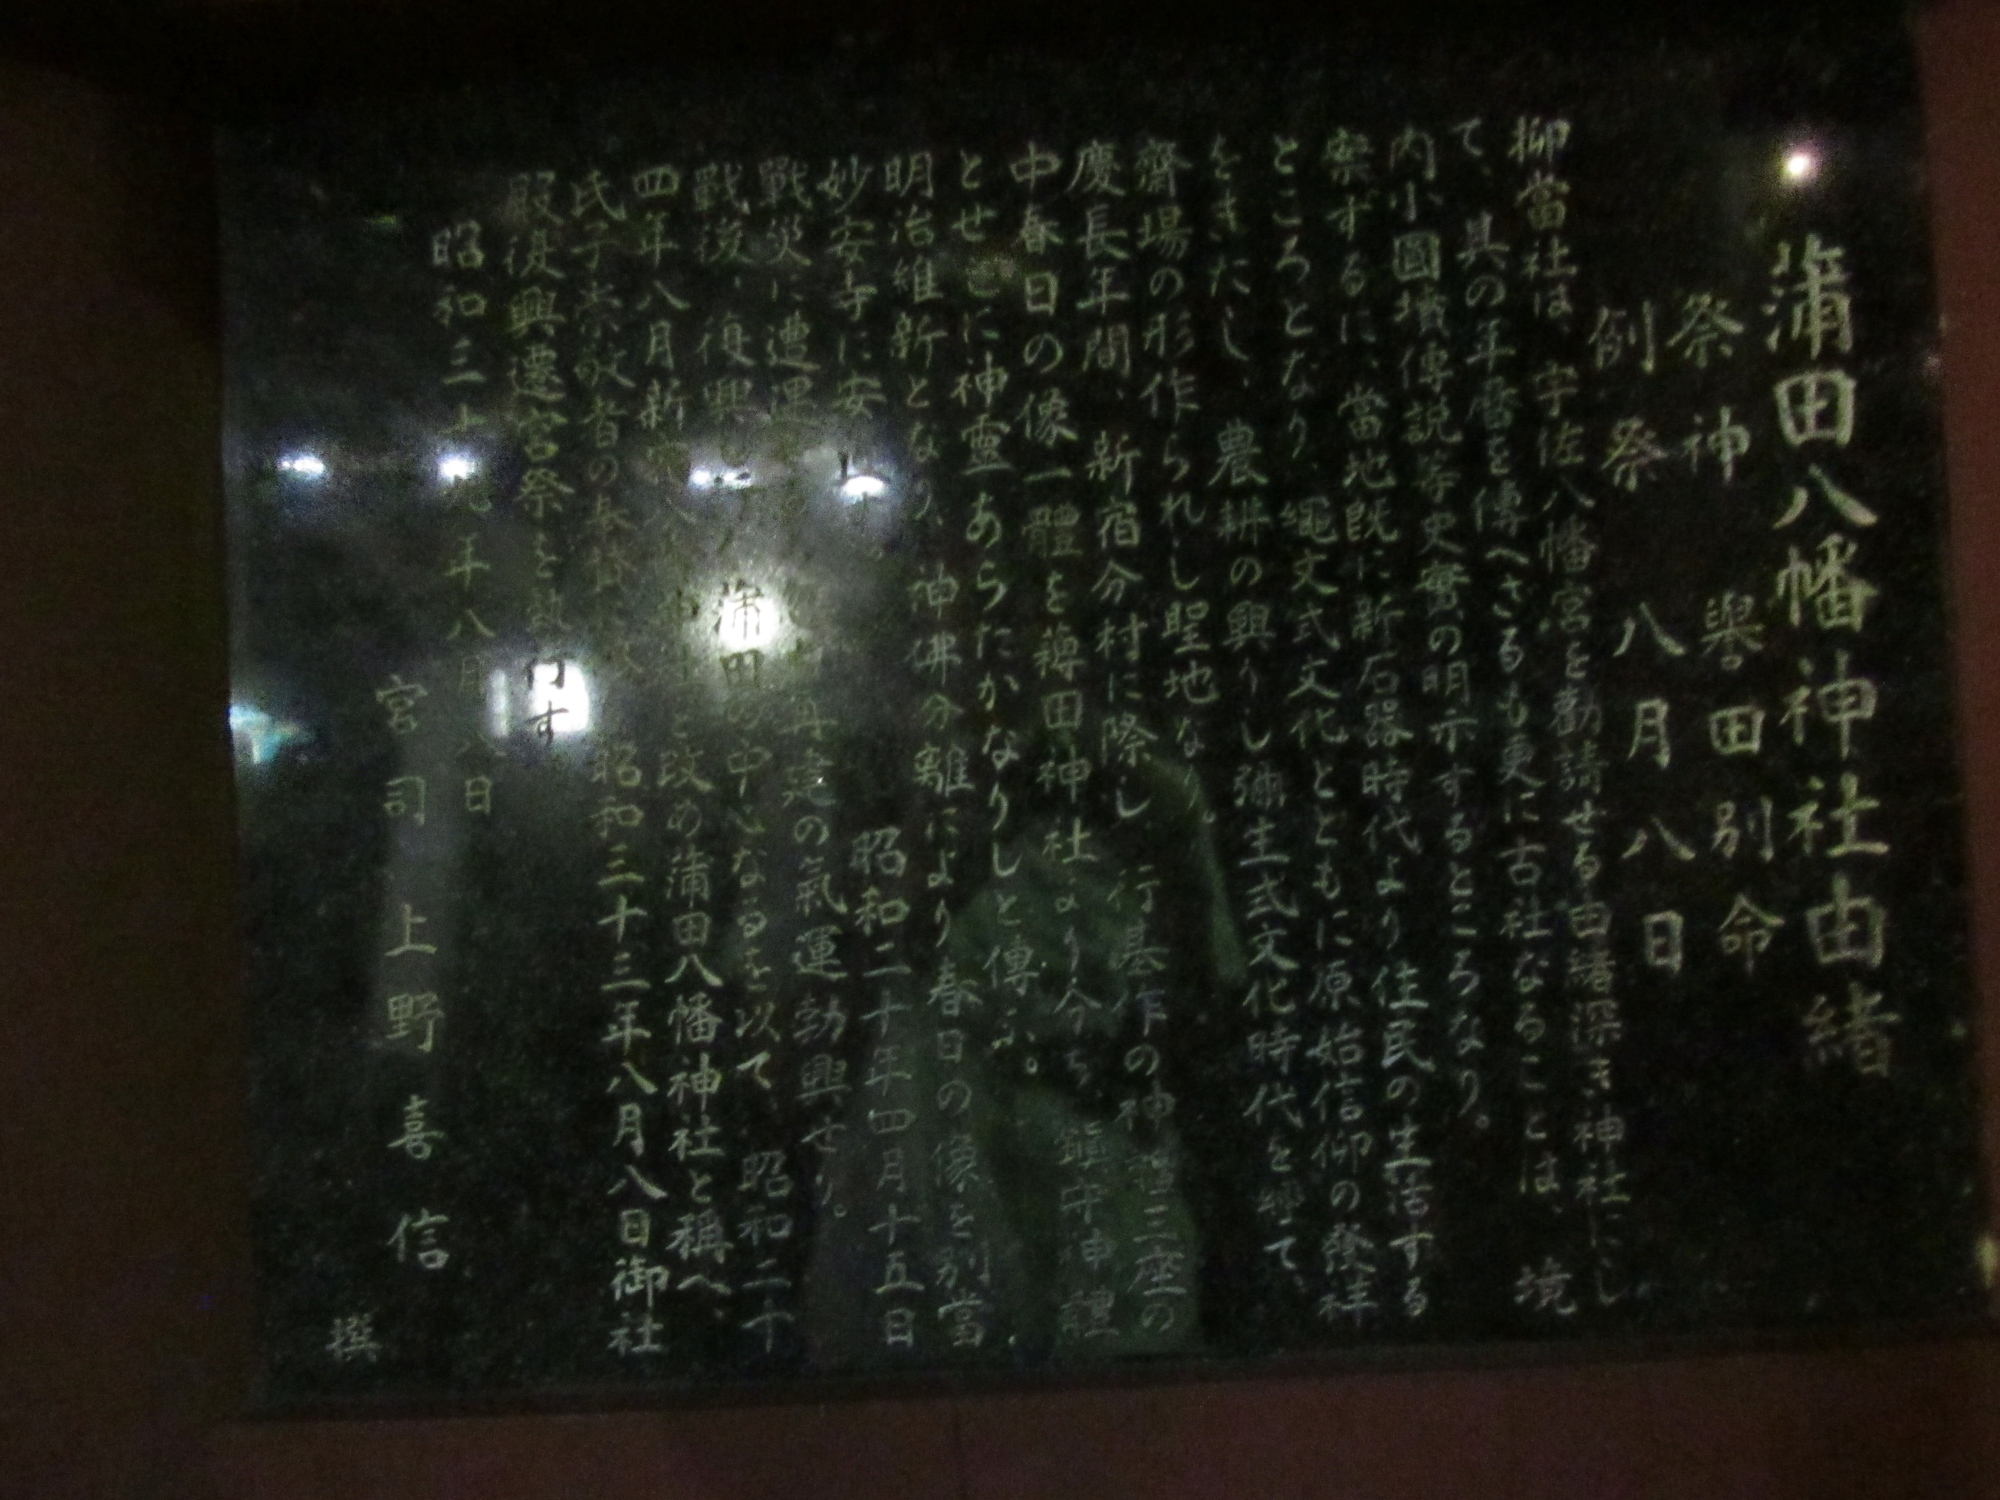 蒲田八幡神社由緒
祭神 譽田別命
例祭 八月八日
抑當社は、宇佐八幡宮を勸請せる由緒深き神社にし
て、其の年暦を傳へさるも更に古社なることは、境
内小圓墳傳説等史實の明示するところなり。
案ずるに、當地既に新石器時代より住民の生活する
ところとなり、繩文式文化とともに原始信仰の發祥
をきたし、農耕の興りし彌生式文化時代を經て、
齋場の形作られし聖地なり。
慶長年間、新宿分村に際し、行基作の神體三座の
中春日の像一體を薭田神社より分ち鎭守神體
とせしに神靈あらたかなりしと傳ふ。
明治維新となり、神佛分離により春日の像を別當
妙安寺に安 昭和二十年四月十五日
戰災に遭 再建の氣運勃興せり。
戰後、復興 蒲田の中心なるを以て 昭和二十
四年八月新 と改め蒲田八幡神社と稱へ、
氏子崇敬者の奉賛 昭和三十三年八月八日御社
殿復興遷宮祭を執行す
昭和三十 年八月八日
宮司 上野喜信
撰